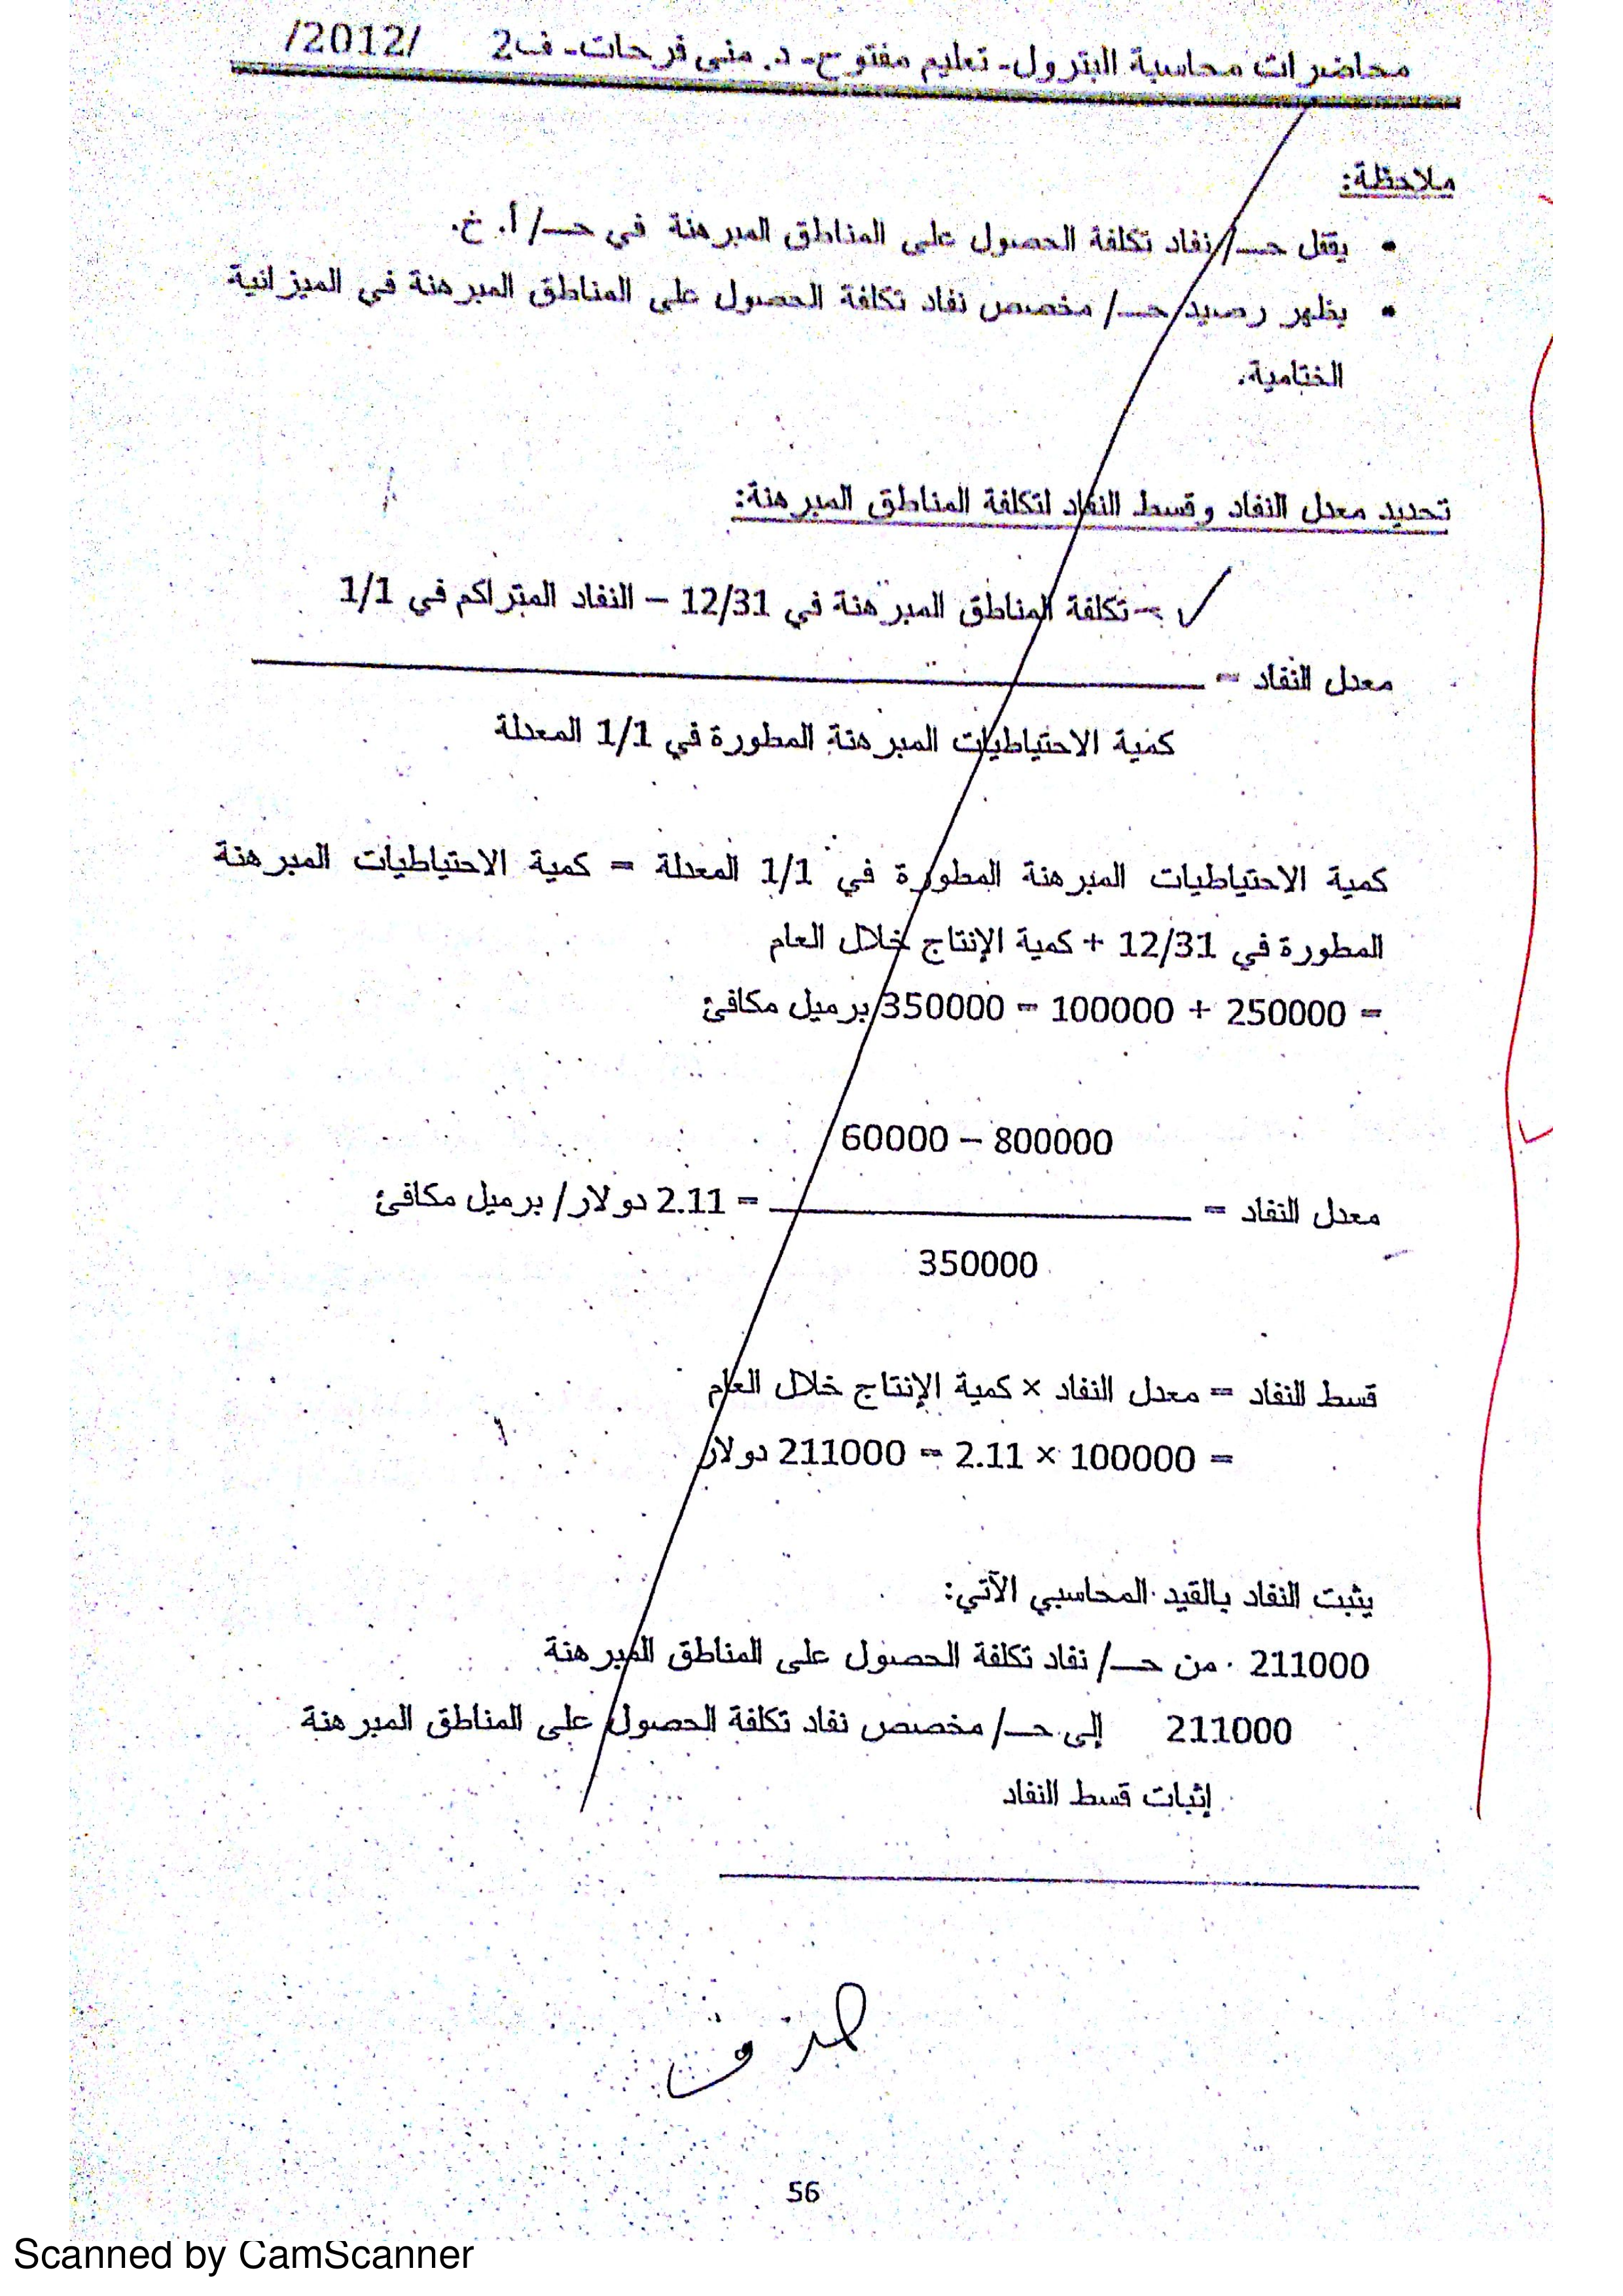 محاضرات محاسبة البترول- تعليم مفتوح- د. منى فرحات- ف2 /2012/
ملاحظة:
• يقفل حـ/ نفاد تكلفة الحصول على المناطق المبرهنة في حـ/ أ. خ.
• يظهر رصيد حـ/ مخصص نفاد تكلفة الحصول على المناطق المبرهنة في الميزانية
الختامية.
تحديد معدل النفاد وقسط النفاد لتكلفة المناطق المبرهنة:
تكلفة المناطق المبرهنة في 12/31 – النفاد المتراكم في 1/1
معدل النفاد =
كمية الاحتياطيات المبرهنة المطورة في 1/1 المعدلة
كمية الاحتياطيات المبرهنة المطورة في 1/1 المعدلة = كمية الاحتياطيات المبرهنة
المطورة في 12/31 + كمية الإنتاج خلال العام
= 250000 + 100000 = 350000 برميل مكافئ
800000 – 60000
معدل النفاد = = 2.11 دولار/ برميل مكافئ
350000
قسط النفاد = معدل النفاد × كمية الإنتاج خلال العام
= 100000 × 2.11 = 211000 دولار
يثبت النفاد بالقيد المحاسبي الآتي:
211000 من حـ/ نفاد تكلفة الحصول على المناطق المبرهنة
211000 إلى حـ/ مخصص نفاد تكلفة الحصول على المناطق المبرهنة
إثبات قسط النفاد
56
Scanned by CamScanner